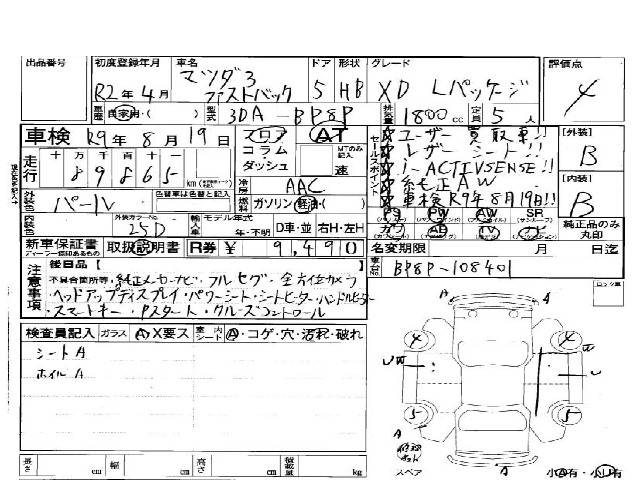 出品番号 初度登録年月 車名 ドア 形状 グレード 評価点
R2年4月 マツダ3 ファストバック 5 HB XD Lパッケージ 4
車歴 自家用・( ) 型式 3DA-BP8P 排気量 1800cc 定員 5人
車検 R9年8月19日 フロア AT
コラム MTのみ記入
ダッシュ 速
走行 十万千百十
89865 km
セールスポイント
☆ユーザー買取車!!
☆レザーシート!!
☆i-ACTIVSENSE!!
☆純正AW
☆車検R9年8月19日!!
[外装] B
[内装] B
外装色 パール 色替車は色替と記入
冷房 AAC
燃料 ガソリン・軽油・( )
内装色 外装カラーNo. 25D 輸入車 モデル年式 年・不明 D車・並 右H・左H
PS PW AW SR
カワ AB TV ナビ
純正品のみ丸印
新車保証書 取扱説明書 R券 ¥ 91,490
ディーラー捺印あるもの
名変期限 月 日迄
車台No. BP8P-108401
注意事項 後日品
不具合箇所等 純正メモリーナビ・フルセグ・全方位カメラ
・ヘッドアップディスプレイ・パワーシート・シートヒーター・ハンドルヒーター
・スマートキー・Pスタート・クルーズコントロール
検査員記入 ガラス A・X要ス 室内シート内 A・コゲ・穴・汚れ・破れ
シートA
ホイルA
A A
4 4
UW W
U
5 5
A A
スペア 小A有・小U有
長さ cm 幅 cm 高さ cm 積載量 kg